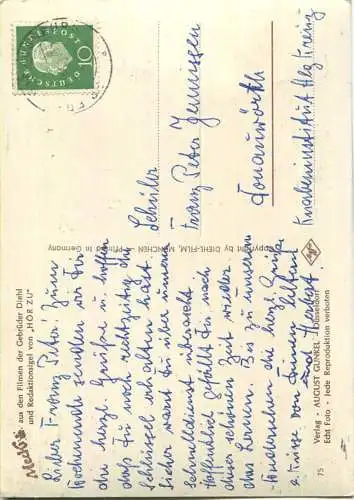 Mecki aus den Filmen der Gebrüder Diehl
und Redaktionsigel von "HÖR ZU"
Lieber Franz Peter! Zum
Wochenende senden wir Dir
die herzl. Grüße u. hoffen
daß Du noch rechtzeitig die
Schlüssel erhalten hast.
Sicher warst Du über unsere
Schnelldienst überrascht
Hoffentlich gefällt Dir nach
dieser schönen Zeit wieder
das Lernen. Bis zu unserem
Wiedersehen die herzl. Grüße
u. Küsse von Deinen Eltern
und Herbst
Verlag - AUGUST GUNKEL - Düsseldorf
Echt Foto - Jede Reproduktion verboten
75
Copyright by DIEHL-FILM, MÜNCHEN - Printed in Germany
Agfa
DEUTSCHE BUNDESPOST
10
Schüler
Franz Peter Jennissen
Donauwörth
Knabeninstitut Hlg. Kreuz